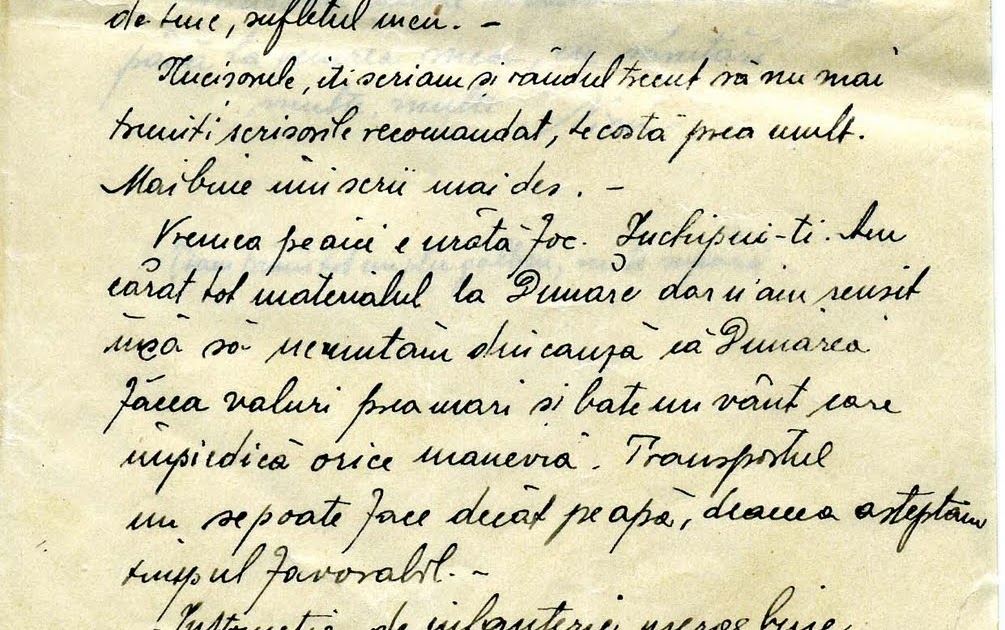 de tine, sufletul meu. –
Nucisorule, iti scriam și rândul trecut să nu mai
trimiti scrisorile recomandat, te costă prea mult.
Mai bine îmi scrii mai des. –
Vremea pe aici e urâtă foc. Inchipui-ti. Am
cărat tot materialul la Dunăre dar n'am reusit
încă să ne mutăm din cauză că Dunărea
făcea valuri prea mari si bate un vânt care
împiedică orice manevră. Transportul
nu se poate face decât pe apă, deaceea asteptăm
timpul favorabil. –
Instructia de infanterie merge bine,